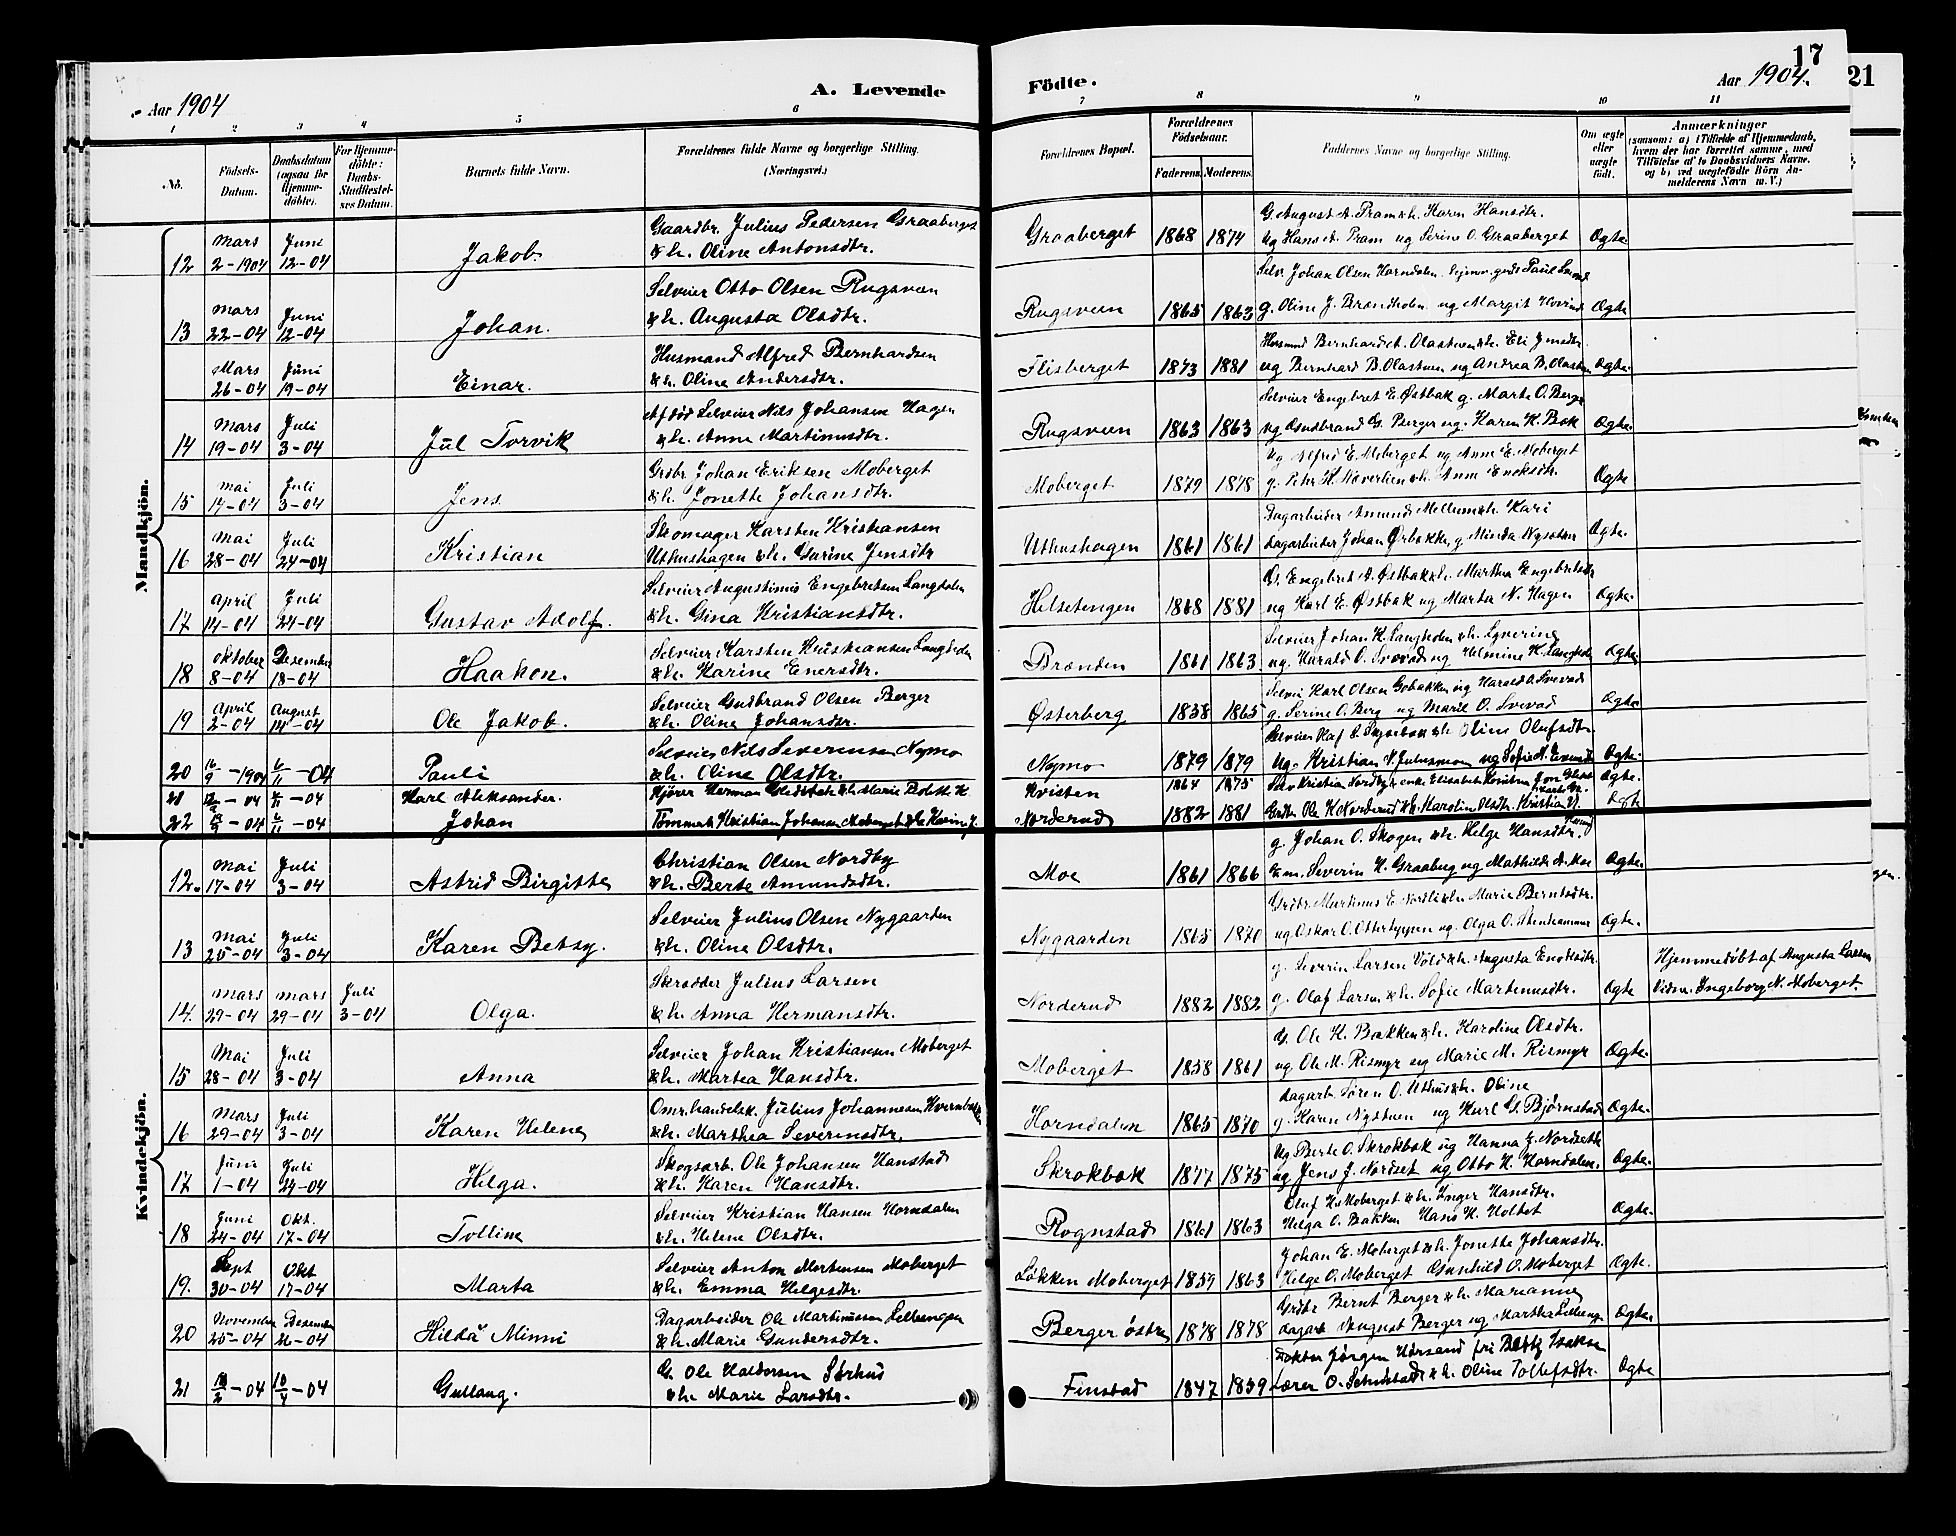 Aar 1904
A. Levende
Födte.
Aar 1904.
17
21
1 2 3 4 5 6 7 8 9 10 11
No.
Födsels-
Datum.
Daabsdatum
(ogsaa for
Hjemme-
döbte).
For Hjemme-
döbte:
Daabs-
Stadfæstel-
ses Datum.
Barnets fulde Navn.
Forældrenes fulde Navne og borgerlige Stilling.
(Næringsvei.)
Forældrenes Bopæl.
Forældrenes
Födselsaar.
Faderens. Moderens.
Faddernes Navne og borgerlige Stilling.
Om ægte
eller
uægte
födt.
Anmærkninger
(saasom: a) i Tilfælde af Hjemmedaab,
hvem der har forrettet samme, med
Tilföielse af to Daabsvidners Navne,
og b) ved uægtefödte Börn An-
melderens Navn m. V.)
Mandkjön.
Gaardbr. Julius Pedersen Graaberget
12 Mars 2-1904 Juni 12-04 Jakob. & h. Oline Antonsdtr. Graaberget 1868 1874 G. August A. Pram & h. Karen Hansdtr.
Ug Hans A. Pram ug Serine O. Graaberget Ægte
Selveier Otto Olsen Rugsveen
13 Mars 22-04 Juni 12-04 Johan. & h. Augusta Olsdtr. Rugsveen 1865 1863 Selv. Johan Olsen Horndalen
g. Oline J. Brændholen ug Margit Ægte
Husmand Alfred Bernhardsen
Mars 26-04 Juni 19-04 Einar. & h. Oline Andersdtr. Flisberget 1873 1881 Husmand Bernhard A. Olastuen & h. Eli Jensdtr.
ug Bernhard B. Olastuen ug Andrea B. Olastuen Ægte
Afdød Selveier Nils Johansen Hagen
14 Mars 19-04 Juli 3-04 Jul Torvik & h. Anne Martinusdtr. Rugsveen 1863 1863 Selveier Engebret E. Østbak g. Marte O. Berger
ug Gudbrand G. Berger ug. Karen K. Bak Ægte
Grdbr. Johan Eriksen Moberget
15 Mai 14-04 Juli 3-04 Jens & h. Jonette Johansdtr. Moberget 1879 1878 Ug Alfred E. Moberget ug Anne E. Moberget
g. Peter H. & h. Anne Enoksdtr. Ægte
Skomager Karsten Kristiansen
16 Mai 28-04 Juli 24-04 Kristian Uthushagen & h. Gurine Jensdtr Uthushagen 1861 1861 Dagarbeider Amund Mellum & h. Kari
dagarbeider Johan Ørbakken g. Minda Ægte
Selveier Augustinus Engebretsen Langholen
17 April 14-04 Juli 24-04 Gustav Adolf. & h. Gina Kristiansdtr. Helsetengen 1868 1881 G. Engebret A. Østbak & h. Martha Engebretsdtr
ug Karl E. Østbak ug Marta N. Hagen Ægte
Selveier Karsten Kristiansen
18 Oktober 8-04 Desember 18-04 Haakon. & h. Karine Enersdtr. Brænden 1861 1863 Selveier Johan K. & h. Syverine
ug. Harald O. Svevad ug Helmine K. Ægte
Selveier Gudbrand Olsen Berger
19 April 2-04 August 14-04 Ole Jakob. & h. Oline Johansdtr. Østerberg 1838 1865 Selvei Karl Olsen Gobakken ug Harald O. Svevad
g. Serine O. Berg ug Marie O. Svevad Ægte
Selveier Nils Severinsen Nymo
20 16/9-1904 6/11-04 Pauli & h. Oline Olsdtr. Nymo 1879 1879 Selveier Olaf & h. Oline Olufsdtr
Ug. Kristian N. Julusmoen ug Sofie N. Ægte
21 12/9-04 6/11-04 Karl Aleksander. Kjører Herman & h. Marie Kvisten 1864 1875 Selv Kristian Nordby & enke Elisabeth Kvisten Ægte.
22 13/9-04 6/11-04 Johan Tømmerh. Kristian Johansen Moberget Norderud 1882 1881 Grdbr Ole K. Norderud & h. Karoline Olsdtr. Kristian Ægte
Kvindekjön.
Christian Olsen Nordby
12. Mai 17-04 Juli 3-04 Astrid Birgitte & h. Berte Amundsdtr. Moe 1861 1866 g. Johan O. Skogen & h. Helge Hansdtr.
Em. Severin H. Graaberg ug Mathilde A. Moe Ægte
Selveier Julius Olsen Nygaarden
13 Mai 25-04 Juli 3-04 Karen Betsy. & h. Oline Olsdtr. Nygaarden 1865 1870 Grdbr. Martinus E. Nordli & h. Marie Berntsdtr.
ug Oskar O. ug. Olga O. Stenhammer Ægte.
Skrædder Julius Larsen
14. Mars 29-04 Mars 29-04 Juli 3-04 Olga. & h. Anna Hermansdtr. Norderud 1882 1882 g. Severin Larsen Vold & h. Augusta Enoksdtr.
g. Olaf Larsen & h. Sofie Martinusdtr. Ægte Hjemmedøbt af Augusta Larsen
Vidne. Ingeborg N. Moberget.
Selveier Johan Kristiansen Moberget
15 Mai 28-04 Juli 3-04 Anna & h. Martea Hansdtr. Moberget 1858 1861 G. Ole H. Bakken & h. Karoline Olsdtr.
ug. Ole M. Rismyr ug Marie M. Rismyr Ægte
Omr. handelsk. Julius Johannesen
16 Mars 29-04 Juli 3-04 Karen Helene & h. Marthea Severinsdtr. Horndalen 1865 1870 dagarb. Søren O. Uthus & h. Oline
g. Karen Nystuen ug Karl G. Bjørnstad Ægte.
Skogsarb. Ole Johansen Hanstad
17 Juni 1-04 Juli 24-04 Helga. & h. Karen Hansdtr. Skrokbak 1877 1875 Ug Berte O. Skrokbak ug Hanna J. Nordseth
ug Jens J. Nordset ug Otto H. Horndalen. Ægte.
Selveier Kristian Hansen Horndalen
18 Juni 24-04 Okt. 17-04 Tolline & h. Helene Olsdtr. Rognstad 1861 1863 Oluf H. Moberget & h. Inger Hansdtr.
Helga O. Bakken Hans H. Holtet Ægte.
Selveier Anton Mortensen Moberget
19. Sept 30-04 Okt 17-04 Marta & h. Emma Helgesdtr. Løkken Moberget 1859 1863 Johan E. Moberget & h. Jonette Johansdtr.
Helge O. Moberget Gunhild O. Moberget Ægte.
Dagarbeider Ole Martinussen
20 November 25-04 Desember 26-04 Hilda Minni & h. Marie Gundersdtr. Berger østre 1878 1878 Grdbr Bernt Berger & h. Marianne
dagarb August Berger ug Martha Ægte.
G. Ole Haldorsen Sørhus
21 18/2-04 10/4-04 Gullaug. & h. Marie Larsdtr. Finstad 1847 1859 Doktor Jørgen frk Betty
Lærer O. & h. Oline Tollefsdtr. Ægte